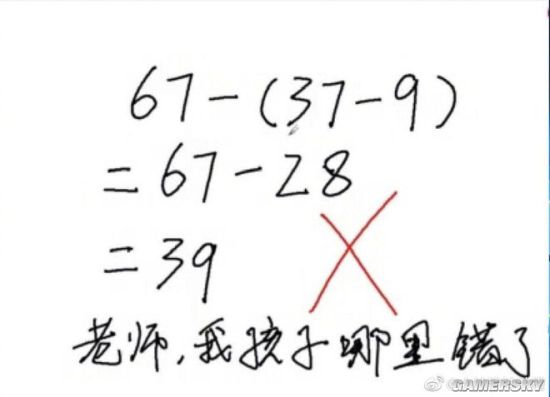 67-(37-9)
=67-28
=39
老师,我孩子哪里错了
GAMERSKY